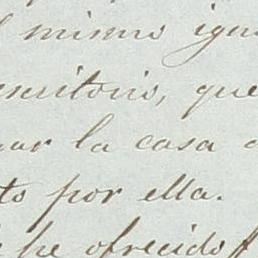 mismo igu
escritorio, que
ar la casa
to por ella.
he ofrecido